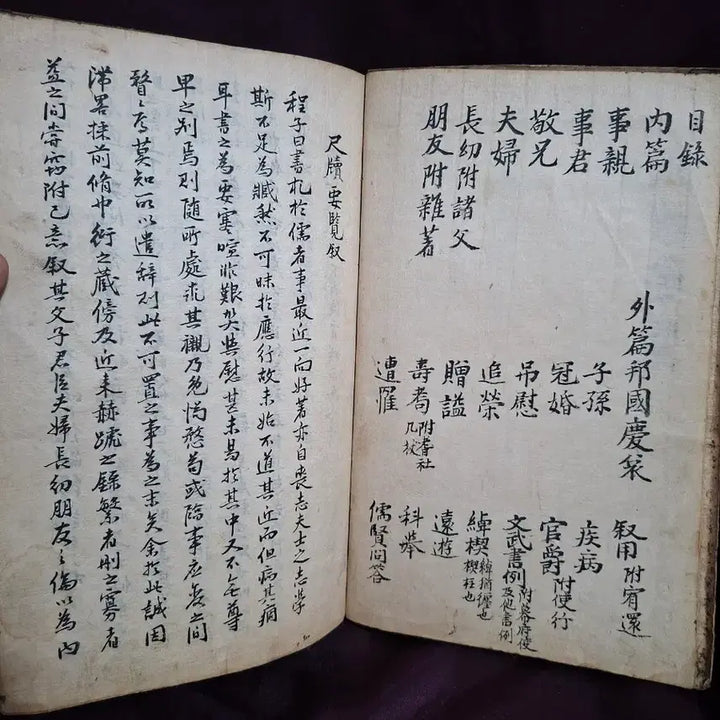 目錄
内篇
事親
事君
敬兄
夫婦
長幼附諸父
朋友附雜著
外篇邦國慶
子孫
冠婚
吊慰
追榮
贈謚
壽耉附耆社几杖
遭罹
叙用附宥還
疾病
官爵附使行
文武書例附幕府使及他書例
綽楔
遠遊
科舉
儒賢問答
尺牘要覽叙
程子曰書札於儒者事最近一向好著亦自喪志夫士之志學
斯不足為然不可昧於應行故未始不道其近而但病其
耳書之為要寒暄非艱哭與慰其未易於其中又不無尊
卑之别焉則随所處求其襯乃免愁苟或臨事應卒之間
瞀瞀焉莫知所以遣辭則此不可置之事為之末矣余於此誠因
滯畧採前脩中衍之蔵傍及近来赫蹏之錄繁者刪之寡者
益之間嘗竊附己意叙其父子君臣夫婦長幼朋友之倫以為内